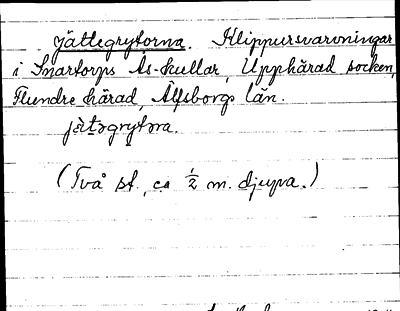 Jättegrytorna. Klippursvarvningar
i Snartorps Ås-kullar, Upphärad socken,
Flundre härad, Älfsborgs län.
jätogrytora.
(Två st, ca ½ m. djupa.)